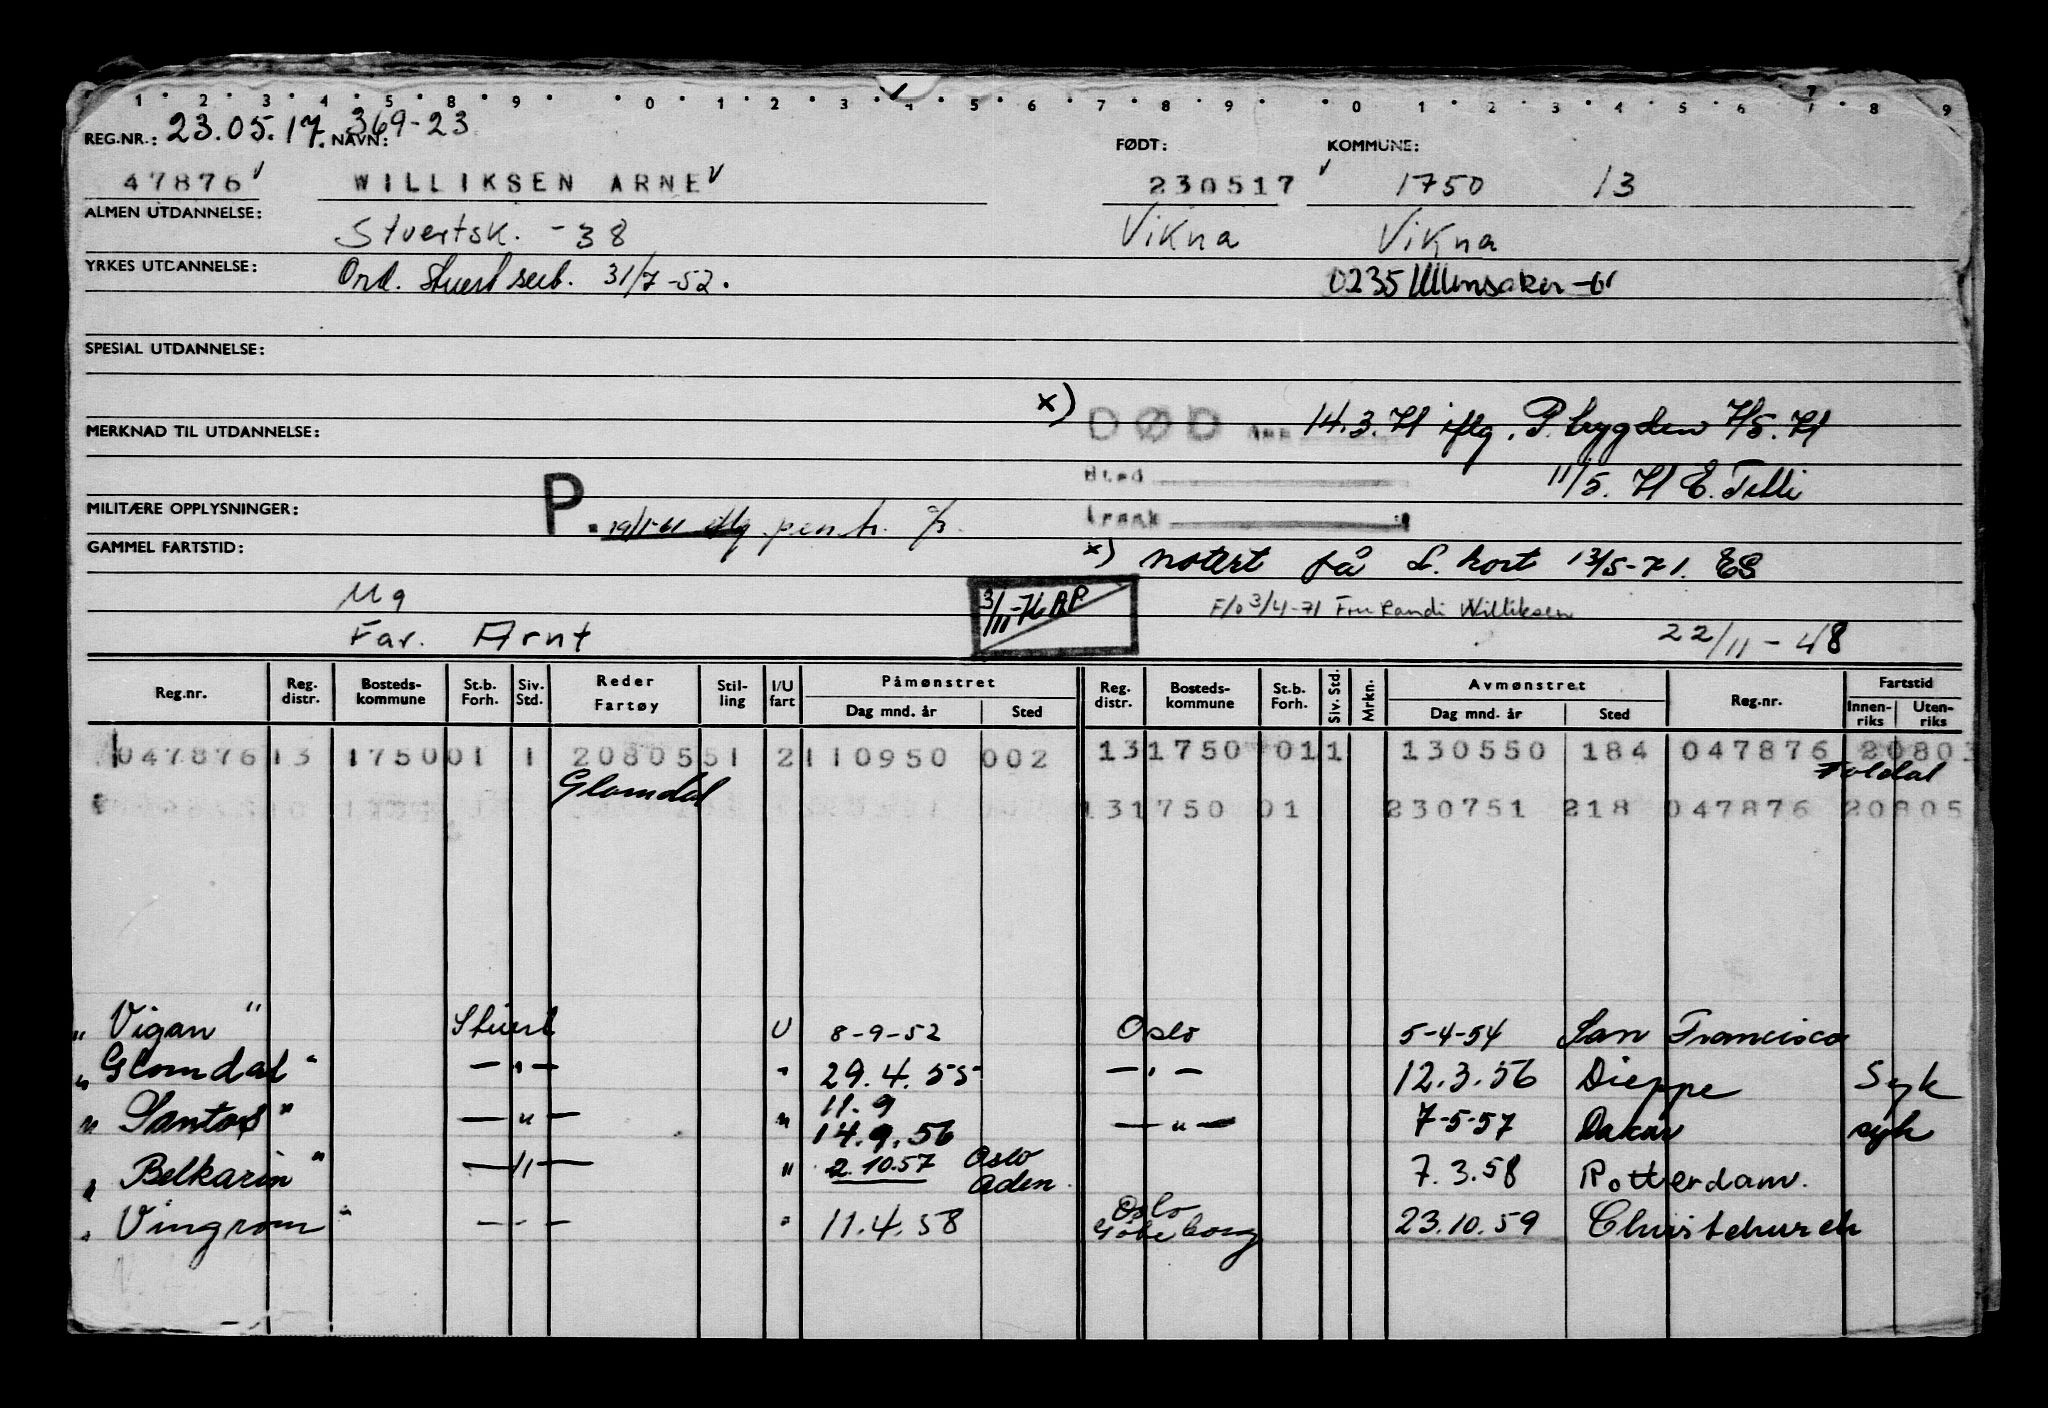 1 2 3 4 5 8 9 0 1 2 3 4 5 6 7 8 9 0 1 2 3 4 5 6 7 8 9
REG.NR.: 23.05.17. 369-23 NAVN: FØDT: KOMMUNE:
47876 WILLIKSEN ARNE 230517 1750 13
ALMEN UTDANNELSE: Stuertsk. - 38 Vikna Vikna
YRKES UTDANNELSE: Ord. Stuert sert. 31/7-52. 0235 Ullensaker -61
SPESIAL UTDANNELSE:
x) DØD 14.3.71 iflg. P. trygden 7/5.71
MERKNAD TIL UTDANNELSE:
Sted 11/5. 71 E.
MILITÆRE OPPLYSNINGER: P. 19/1-61 iflg pens tr. Årsak
GAMMEL FARTSTID: x) notert på S. kort 13/5-71. ES
Ug 3/11-76 F/o 3/4-71 Fru Randi Williksen
Far. Arnt 22/11 - 48
Reg.nr. Reg. distr. Bosteds-kommune St.b. Forh. Siv. Std. Reder Fartøy Stil-ling I/U fart Påmønstret Dag mnd. år Sted Reg. distr. Bosteds-kommune St.b. Forh. Siv. Std. Mrkn. Avmønstret Dag mnd. år Sted Reg.nr. Fartstid Innen-riks Uten-riks
047876 13 1750 01 1 20805 51 2 110950 002 13 1750 01 1 130550 184 047876 20803
Glomdal Foldal
131750 01 230751 218 047876 20805
" Vigan " Stuert U 8-9-52 Oslo 5-4-54 San Francisco
" Glomdal " — " — " 29.4.55 — " — 12.3.56 Dieppe Syk
" Santos " — " — " 11.9 14.9.56 — " — 7-5-57 Dakar syk
" Belkarin " — " — " 2.10.57 Oslo Aden. 7.3.58 Rotterdam.
" Vingrom " — " — " 11.4.58 Oslo Gøteborg 23.10.59 Christchurch